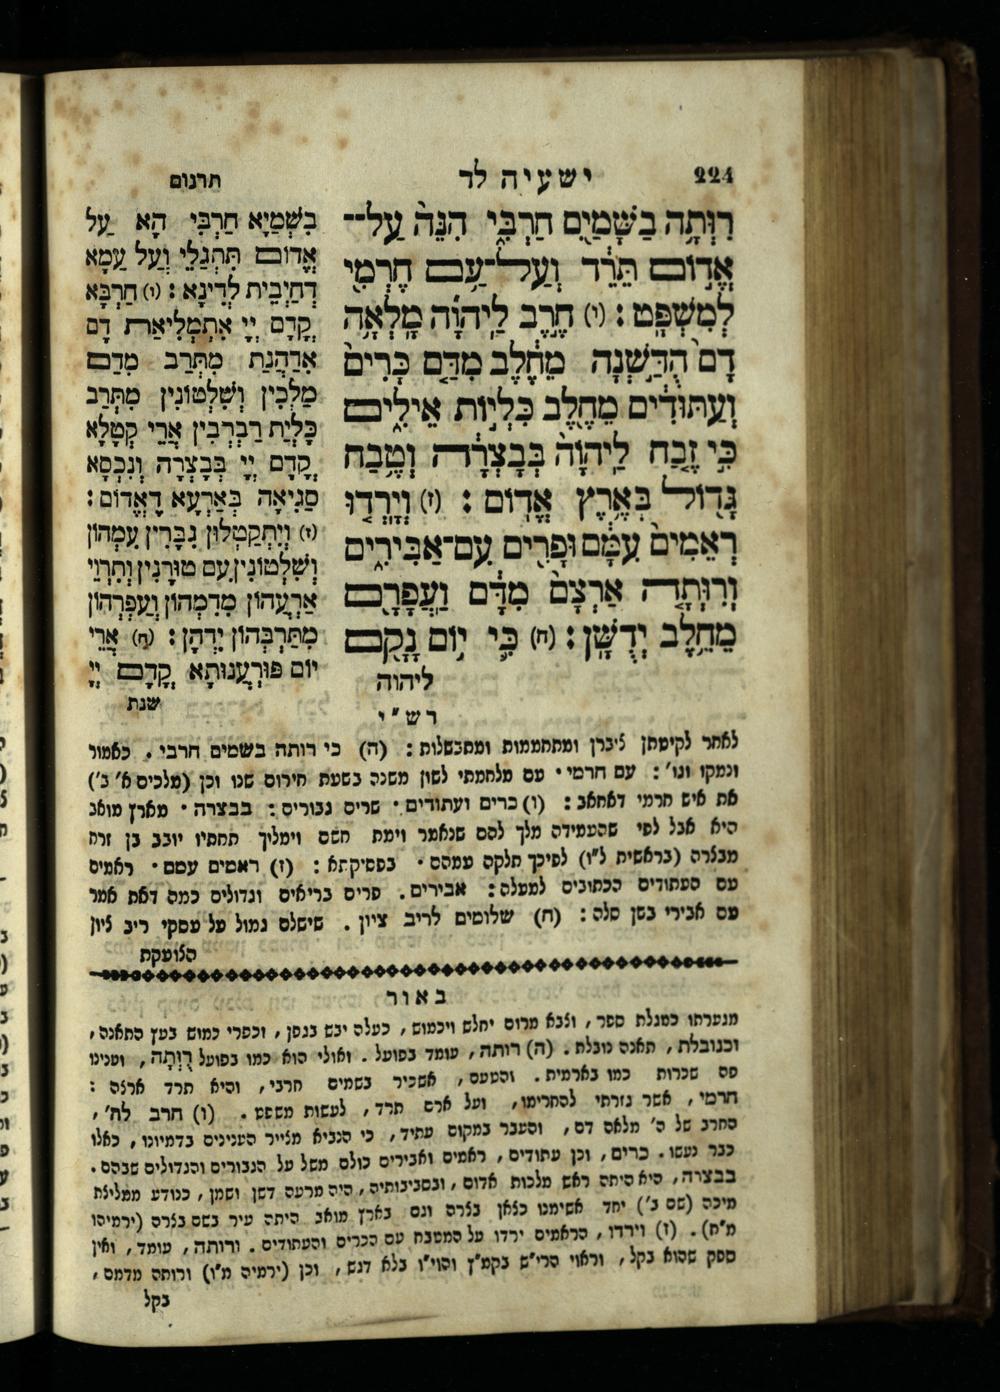 224
ישעיה לד
תרגום
רִוְּתָה בַשָּׁמַיִם חַרְבִּי הִנֵּה עַל־
אֱדוֹם תֵּרֵד וְעַל־עַם חֶרְמִי
לְמִשְׁפָּט: (ו) חֶרֶב לַיהוָֹה מָלְאָה
דָם הֻדַּשְׁנָה מֵחֵלֶב מִדַּם כָּרִים
וְעַתּוּדִים מֵחֵלֶב כִּלְיוֹת אֵילִים
כִּי זֶבַח לַיהוָֹה בְּבָצְרָה וְטֶבַח
גָּדוֹל בְּאֶרֶץ אֱדוֹם: (ז) וְיָרְדוּ
רְאֵמִים עִמָּם וּפָרִים עִם־אַבִּירִים
וְרִוְּתָה אַרְצָם מִדָּם וַעֲפָרָם
מֵחֵלֶב יְדֻשָּׁן: (ח) כִּי יוֹם נָקָם
ליהוה
בִשְׁמַיָא חַרְבִּי הָא עַל
אֱדוֹם תִּתְגְלֵי וְעַל עַמָא
דְחַיְבִית לְדִינָא: (ו) חַרְבָּא
קֳדָם יְיָ אִתְמְלִיאַת דָם
אִדַהֲנַת מִתְּרַב מִדַם
מַלְכִין וְשִׁלְטוֹנִין מִתְּרַב
כָּלְיַת רַבְרְבִין אֲרֵי קְטָלָא
קֳדָם יְיָ בְּבָצְרָה וְנִכְסָא
סַגִיאָה בְּאַרְעָא דֶאֱדוֹם:
(ז) וְיִתְקַטְלוּן גִבָּרִין עִמְהוֹן
וְשִׁלְטוֹנִין עִם טוּרָנִין וְתִרְוַי
אַרְעֲהוֹן מִדִמְהוֹן וְעַפְרְהוֹן
מִתַּרְבְּהוֹן יִדְהָן: (ח) אֲרֵי
יוֹם פּוּרְעֲנוּתָא קֳדָם יְיָ
שנת
רש"י
לאחר לקיטתן ליברן ומתחממות ומתבשלות: (ה) כי רותה בשמים חרבי. כאמור
ונמקו וגו': עם חרמי. עם מלחמתי לשון משנה בשעת חירום שנו וכן (מלכים א' כ')
את איש חרמי דאחאב: (ו) כרים ועתודים. שרים גבורים: בבצרה. מארץ מואב
היא אבל לפי שהעמידה מלך להם שנאמר וימת חשם וימלוך תחתיו יובב בן זרח
מבצרה (בראשית ל"ו) לפיכך תלקה עמהם. בפסיקתא: (ז) ראמים עמם. ראמים
עם העתודים הכתובים למעלה: אבירים. פרים בריאים וגדולים כמה דאת אמר
עם אבירי בשן סלה: (ח) שלומים לריב ציון. שישלם גמול על עסקי ריב ציון
הצועקת
באור
מנערתו כמגלת ספר, וצבא מרום יחלש ויכמוש, כעלה יבש בגפן, וכפרי כמוש בעץ התאנה,
וכנובלת, תאנה נובלת. (ה) רותה, עומד בפועל. ואולי הוא כמו בפועל רֻוְּתָה, וענינו
פה שכרות כמו בארמית. והטעם, אשכיר בשמים חרבי, והיא תרד ארצה:
חרמי, אשר גזרתי להחרימו, ועל אדם תרד, לעשות משפט. (ו) חרב לה',
החרב של ה' מלאה דם, והעבר במקום עתיד, כי הנביא מצייר הענינים בדמיונו, כאלו
כבר נעשו. כרים, וכן עתודים, ראמים ואבירים כולם משל על הגבורים והגדולים שבהם.
בבצרה, היא היתה ראש מלכות אדום, ובסביבותיה, היה מרעה דשן ושמן, כנודע ממליצת
מיכה (שם ב') יחד אשימנו כצאן בצרה וגם בארץ מואב היתה עיר בשם בצרה (ירמיהו
מ"ח). (ז) וירדו, הראמים ירדו על המטבח עם הכרים והעתודים. ורותה, עומד, ואין
ספק שהוא בקל, וראוי הרי"ש בקמ"ץ והוי"ו בלא דגש, וכן (ירמיה מ"ו) ורותה מדמם,
בקל